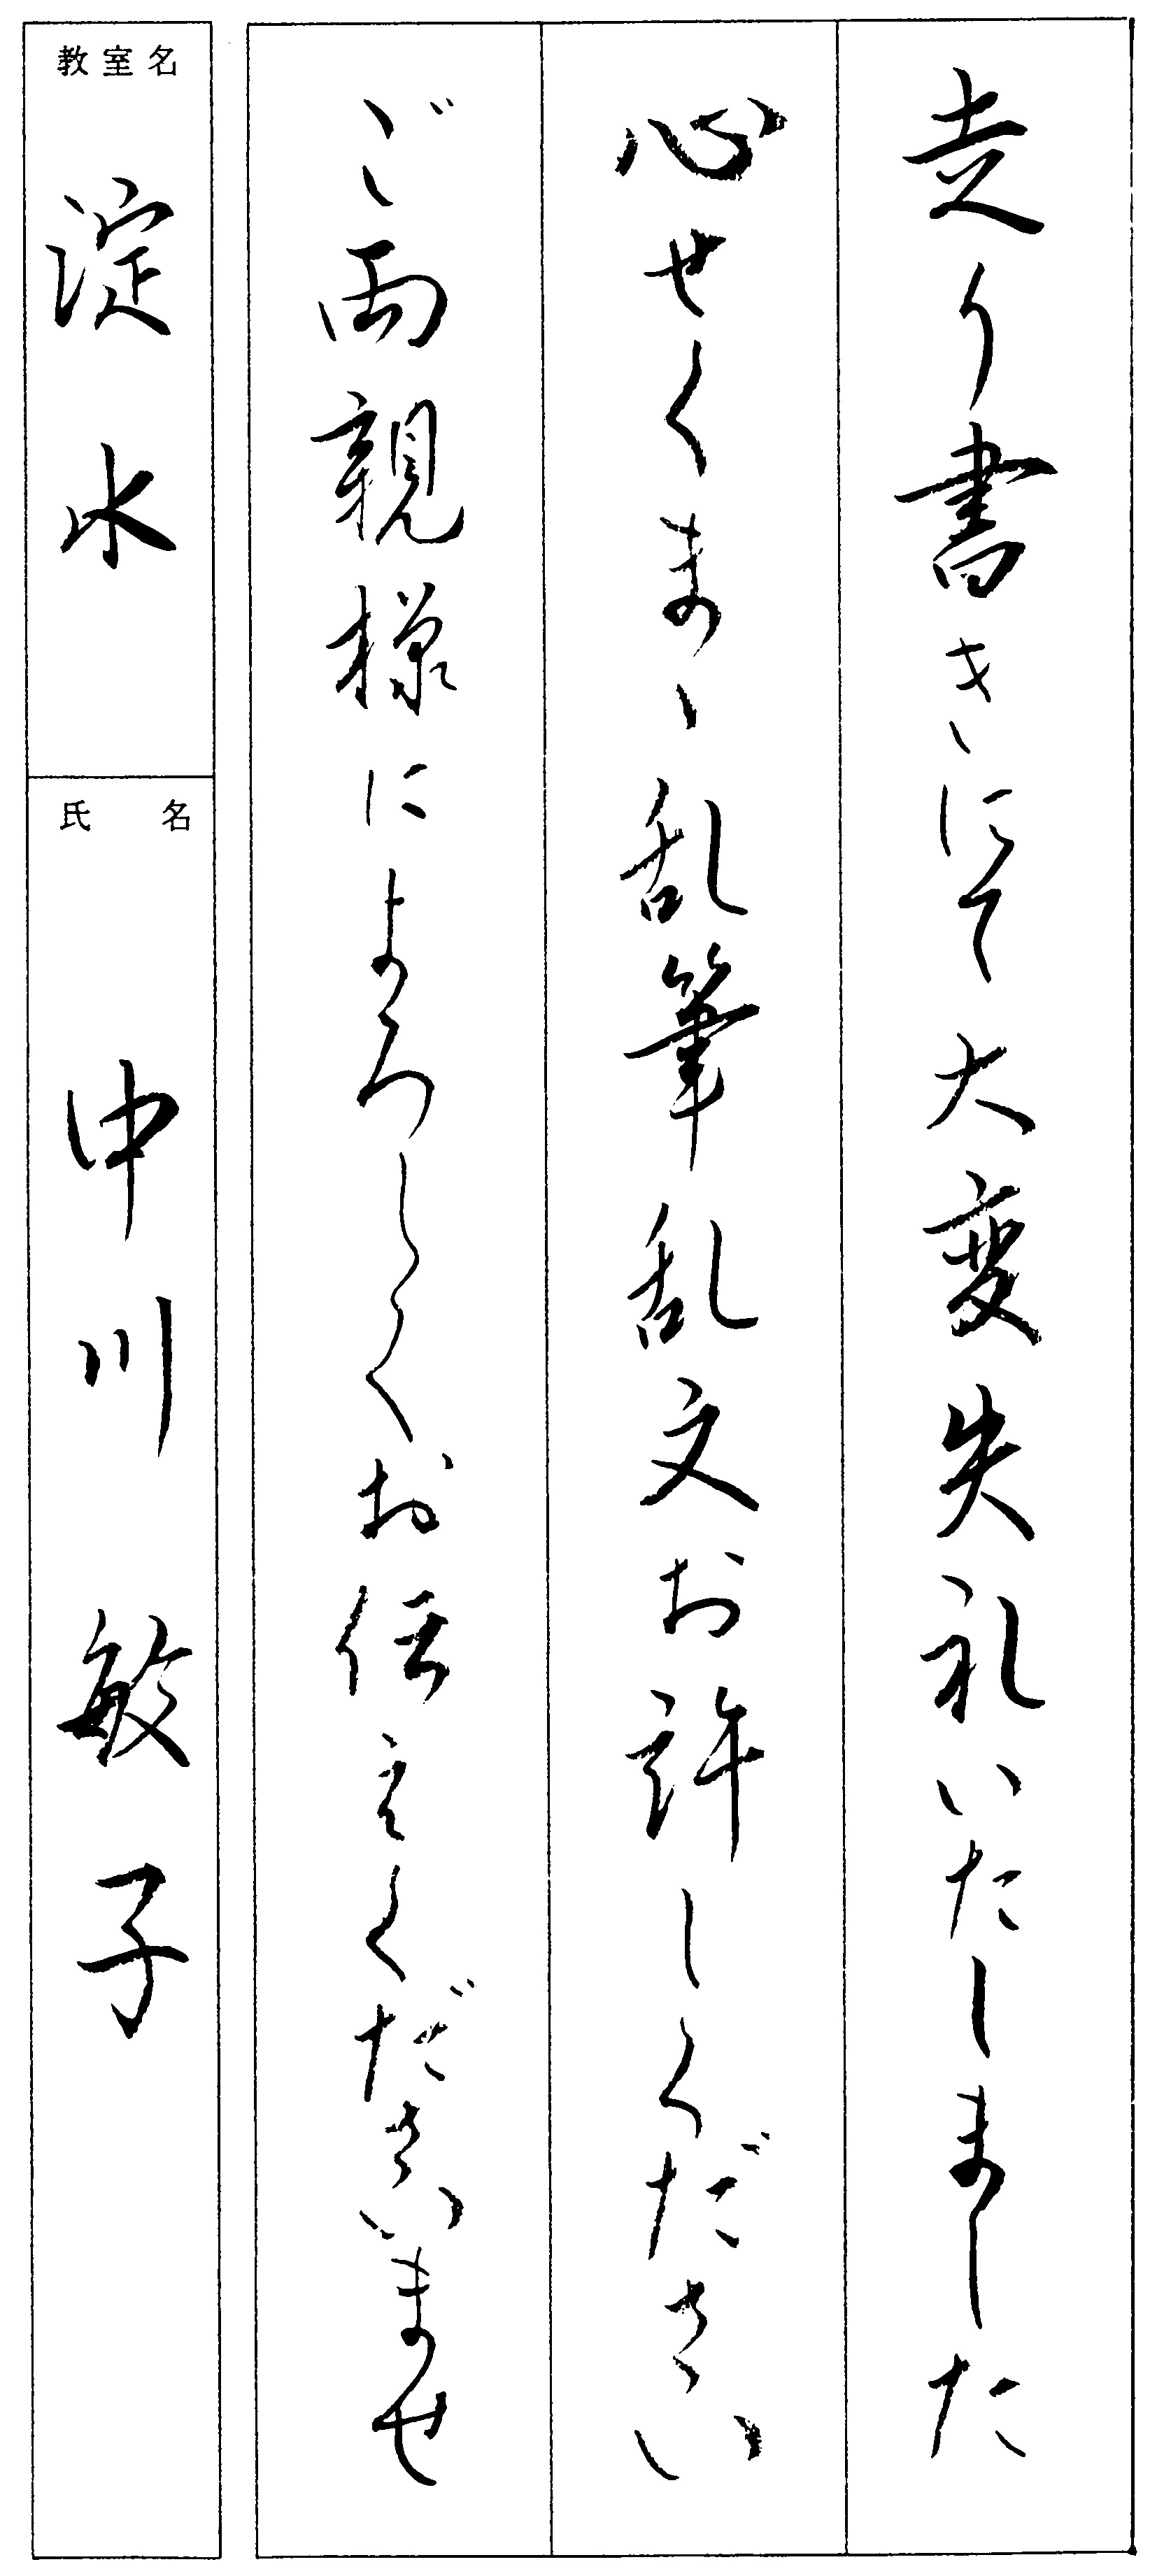 走り書きにて大変失礼いたしました
心せくまゝ乱筆乱文お許しください
ご両親様によろしくお伝えくださいませ
教室名
淀水
氏名
中川敏子